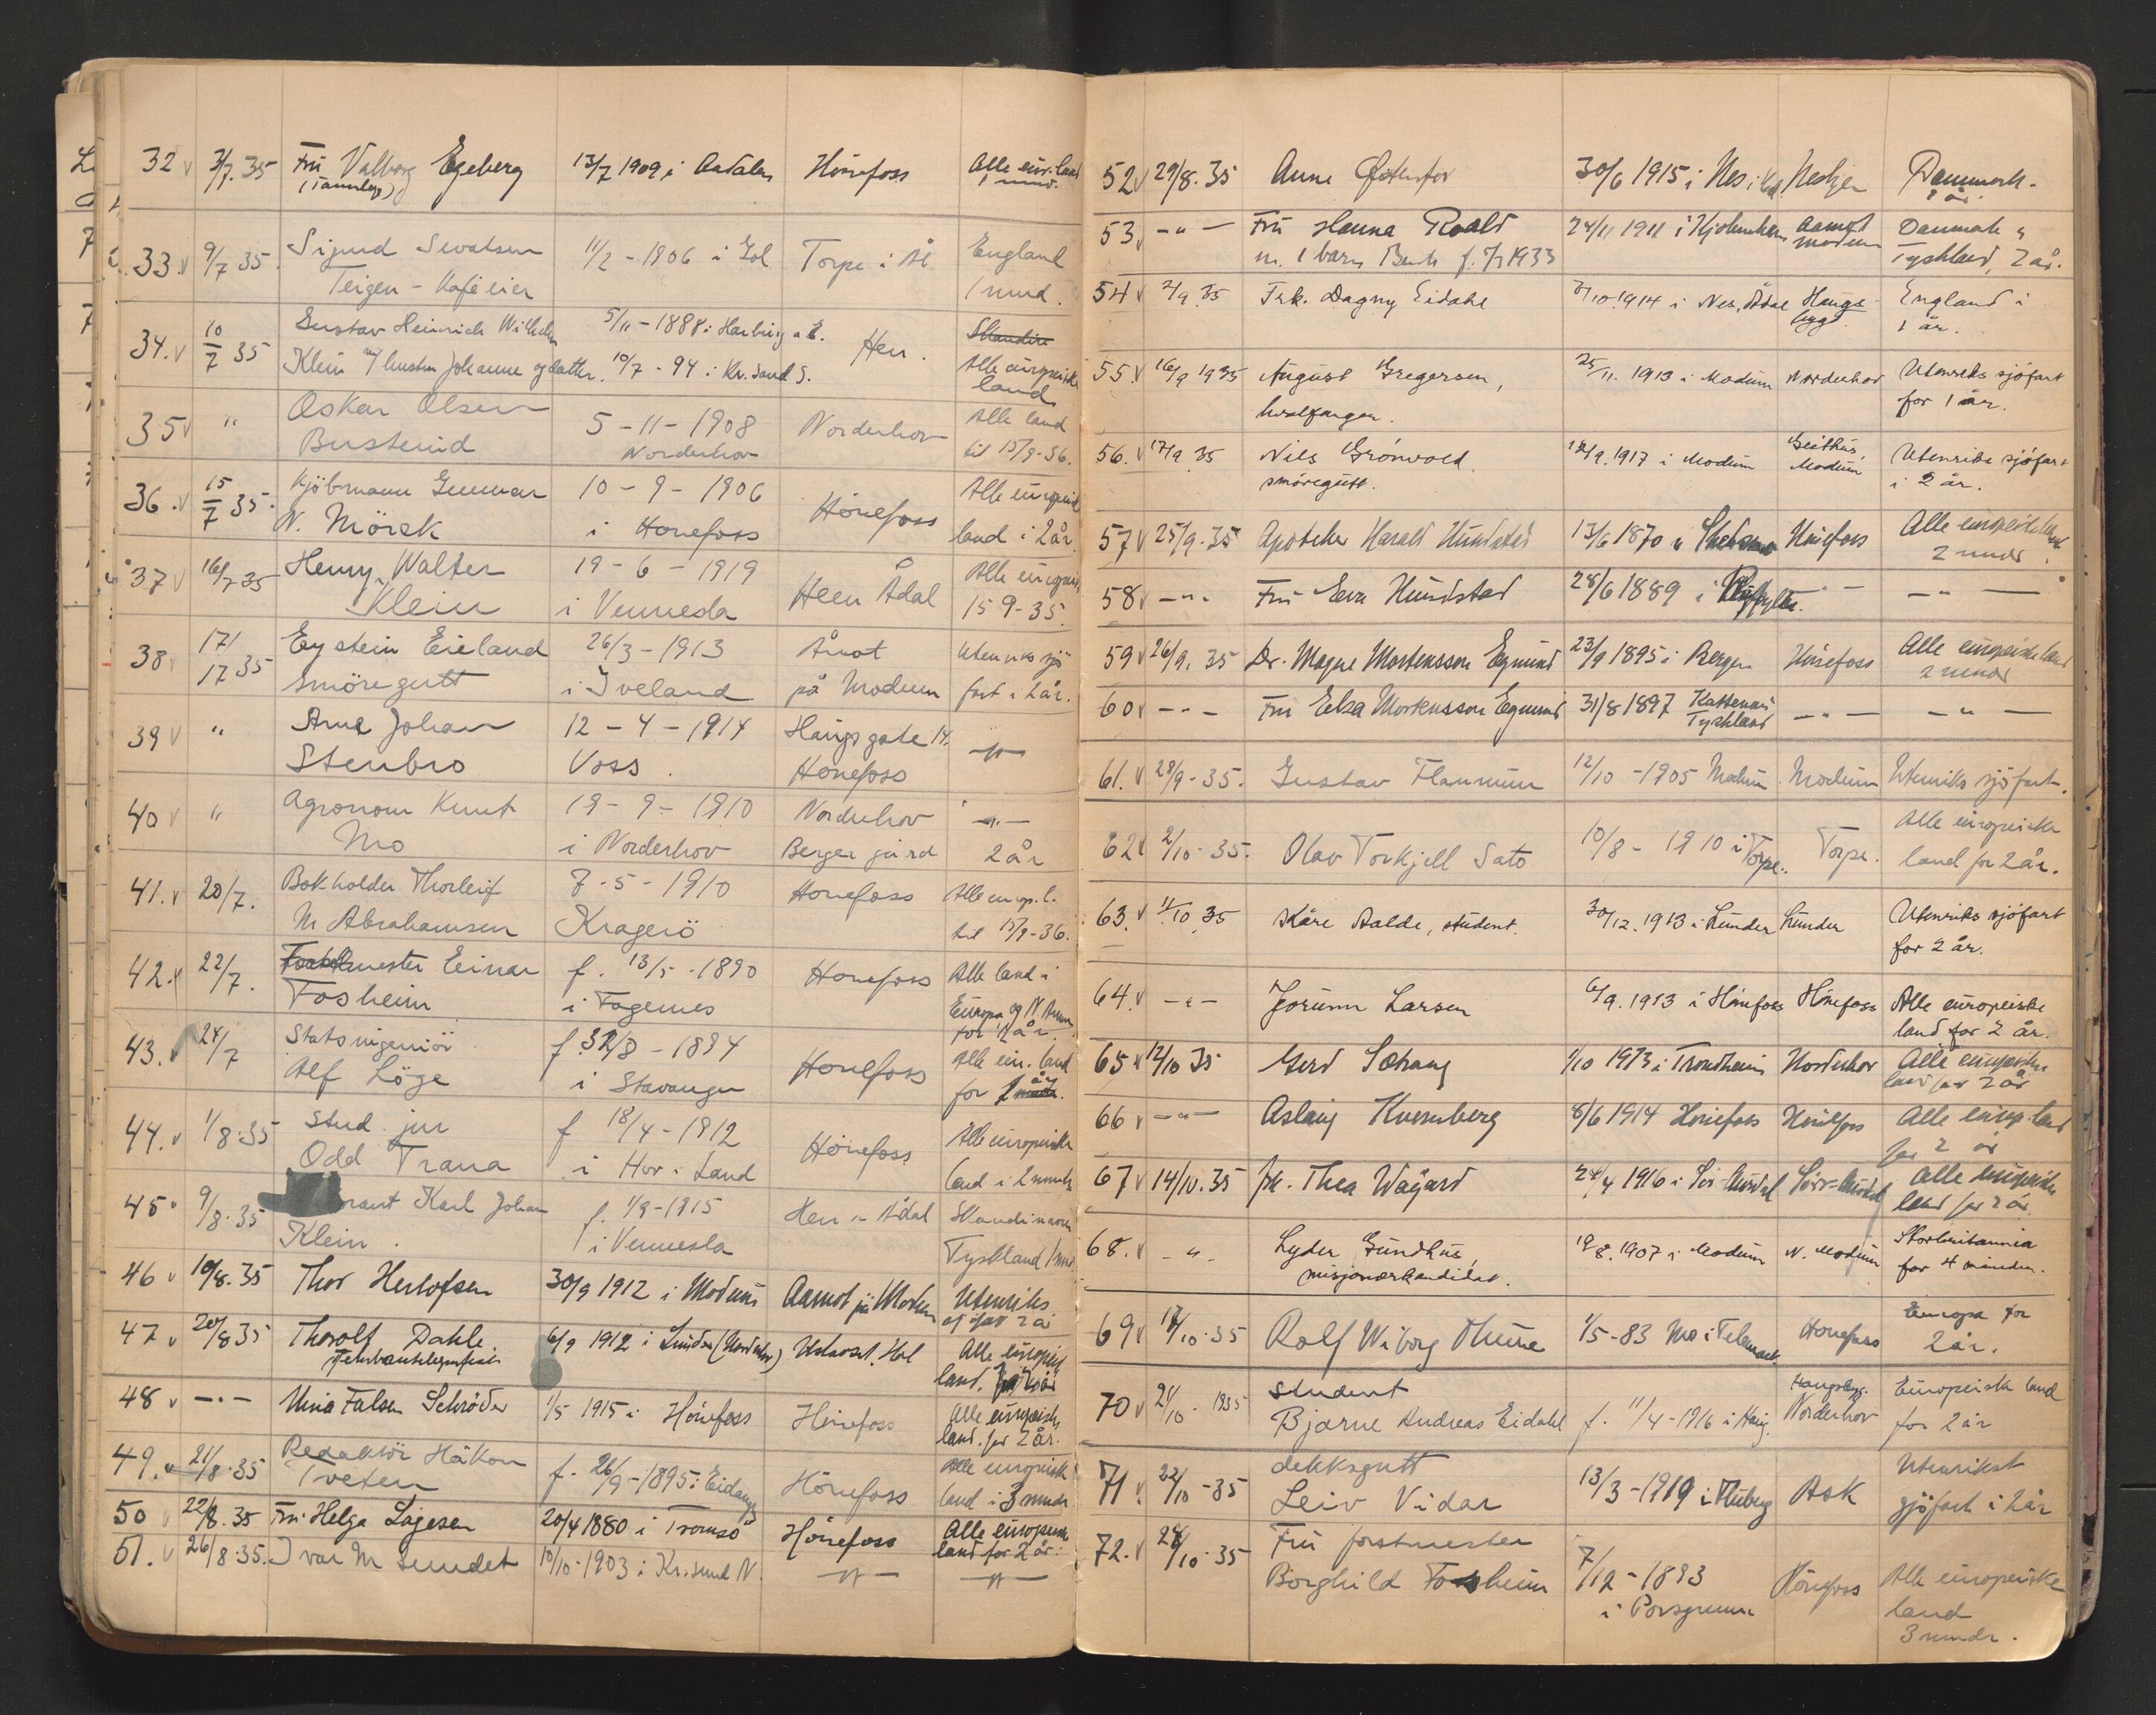 32 v 3/7.35 Fru Valborg Egeberg 13/7 1909 i Aadalen Hönefoss Alle eur. land
(Tannlege) 1 mnd.
33 v 9/7 35. Sigurd Sevatsen 11/2 - 1806 i Gol Torpe i Ål England
Teigen - Kaféeier 1 mnd.
34. v 10/7 35 Gustav Heinrich Wilhelm 5/11 - 1888 i Harburg a. E. Hen. Skandin
Klein m/ hustru Johanne og datter. 10/7 - 94 i Kr.sand S. Alle europeiske land
35 v " Oskar Olsen 5 - 11 - 1908 Norderhov Alle land
Busterud Norderhov til 15/9-36.
36. v 15/7 35. Kjöbmann Gunnar 10 - 9 - 1906 Hönefoss Alle europeisk
N. Mörck i Honefoss land i 2 år.
37 v 16/7 35 Henry Walter 19 - 6 - 1919 Heen Ådal Alle europeis
Klein i Vennesla 15 9-35.
38 v 17/ Eystein Eieland 26/3 - 1913 Åmot Utenriks sjö
17 35 Smöregutt i Iveland på Modum fart i 2 år.
39 v " Arne Johan 12 - 4 - 1914 Haugsgate 14. -"-
Stenbro Voss. Honefoss
40 v " Agronom Knut 19 - 9 - 1910 Norderhov -"-
Mo i Norderhov Berger gård 2 år
41. v 20/7. Bokholder Thorleif 7 - 5 - 1910 Honefoss Alle europ. l.
M Abrahamsen Kragerö til 15/9-36.
42. v 22/7. mester Einar f. 13/5 - 1890 Honefoss Alle land i
Fosheim i Fagernes Europa og N. Amer
for år
43. v 24/7 Statsingeniör f. /8 - 1894 Honefoss Alle eur. land
Alf Löge i Stavanger for år
44. v 1/8.35 Stud. jur f 18/4 - 1912 Hönefoss Alle europeiske
Odd Trana i Hov i Land land i 2 mndr
45 v 9/8.35 Karl Johan f. 1/9 - 1915 Hen i Ådal Skandinavien
Klein. i Vennesla Tyskland 1 mnd
46 v 10/8.35 Thor Herlofsen 30/9 1912 i Modum Aamot på Modum Utenriks
sjöfar 2 år
47 v 20/8 35 Thorolf Dahle 6/9 1912 i Lunder (Norderhov) Ustaoset. Hol Alle europeis
land.
48 v -"- Unia Falsen Schröder 1/5 1915 i Hönefoss Hönefoss Alle europeiske
land. for 2 år.
49. v 21/8.35 Redaktör Håkon f. 26/9 - 1895 i Eidanger Hönefoss Alle europeisk
Tveten land i 3 mndr
50 v 22/8.35 Fru Helga Lagesen 20/4 1880 i Tromsö Hönefoss Alle europeisk
land for 2 år.
51. v 26/8.35. Ivar M Sundet 10/10 - 1903 i Kr.sund N. -"- -"-
52 v 29/8.35 Anne Østenfor 30/6 1915 i Nes i Nesbyen Danmark.
1 år.
53 v -"- Fru Hanna Roald 24/11 1911 i Kjøbenhavn Aamot Modum Danmark &
m. 1 barn 1933 Tyskland, 2 år.
54 v 2/9.35 Frk. Dagny Eidahl /10 1914 i Nes, Ådal Haugsbygd England i
1 år.
55. v 16/9 1935 August Gregersen, 25/11. 1913 i Modum Norderhov Utenriks sjöfart
hvalfanger. for 1 år.
56. v 17/9.35 Nils Grönvold. /9.1917 i Modum Geithus, Modum Utenriks sjöfart
smöregutt. i 2 år.
57 v 25/9.35 Apoteker Harald Hundstad 13/6 1870 i Hönefoss Alle europeiske land
2 mndr.
58 v -"- Fru Eva Hundstad 28/6 1889 i -"- -"-
59 v 26/9. 35 Dr. Magne Mortensson Egnund 23/9 1895 i Bergen Hönefoss Alle europeiske land
2 mndr
60 v -"- Fru Elsa Mortensson Egnund 31/8 1897 Tyskland -"- -"-
61. v 28/9-35. Gustav Flannum 12/10 - 1905 Modum Modum Utenriks sjöfart.
62 v 2/10-35. Olav Torkjell Sato 10/8 - 1910 i Torpe. Torpe. Alle europeiske
land for 2 år.
63. v 11/10.35 Kåre Aalde, student. 30/12.1913 i Lunder Lunder Utenriks sjöfart
for 2 år.
64. v -"- Jorunn Larsen 6/9.1913 i Hönefoss Hönefoss Alle europeiske
land for 2 år.
65 v 12/10 35 Gerd Sætrang 1/10 1913 i Trondheim Norderhov Alle europeiske
land for 2 år
66 v -"- Aslaug Kvernberg 8/6 1914 Hönefoss Hönefoss Alle europ. land
for 2 år
67 v 14/10.35 frk. Thea Wågård 24/4 1916 i Sör-Aurdal Sör-Aurdal Alle europeiske
land for 2 år.
68. v -"- Lyder Gundhus, 19/8.1907 i Modum N. Modum Storbritannia
misjonærkandidat. for 4 måneder.
69 v 17/10.35 Rolf Wiborg Thune 1/5-83 Mo i Telemark Honefoss Europa for
2 år.
70 v 21/10 - 1935 Student Haugsby. Europeisk land
Bjarne Andreas Eidahl f. 11/4-1916 i Haug. Norderhov for 2 år
71 v 22/10-35 dekksgutt 13/3-1919 i Ask Utenrikst
Leiv Vidar sjöfart i 2 år
72. v 28/10.35 Fru forstmester 7/12 - 1893 Hönefoss Alle europeiske
Borghild Fosheim i Porsgrunn land
3 mndr.